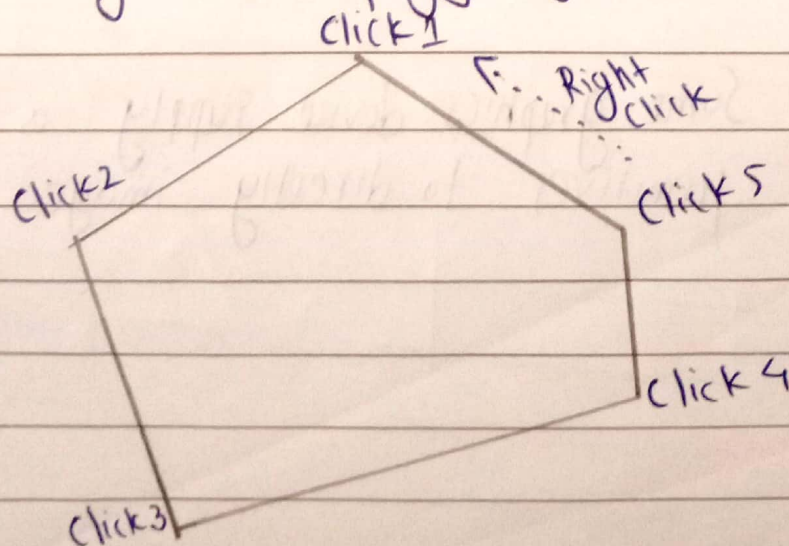 Click 1
Right
Click
Click 2
Click 5
Click 4
Click 3